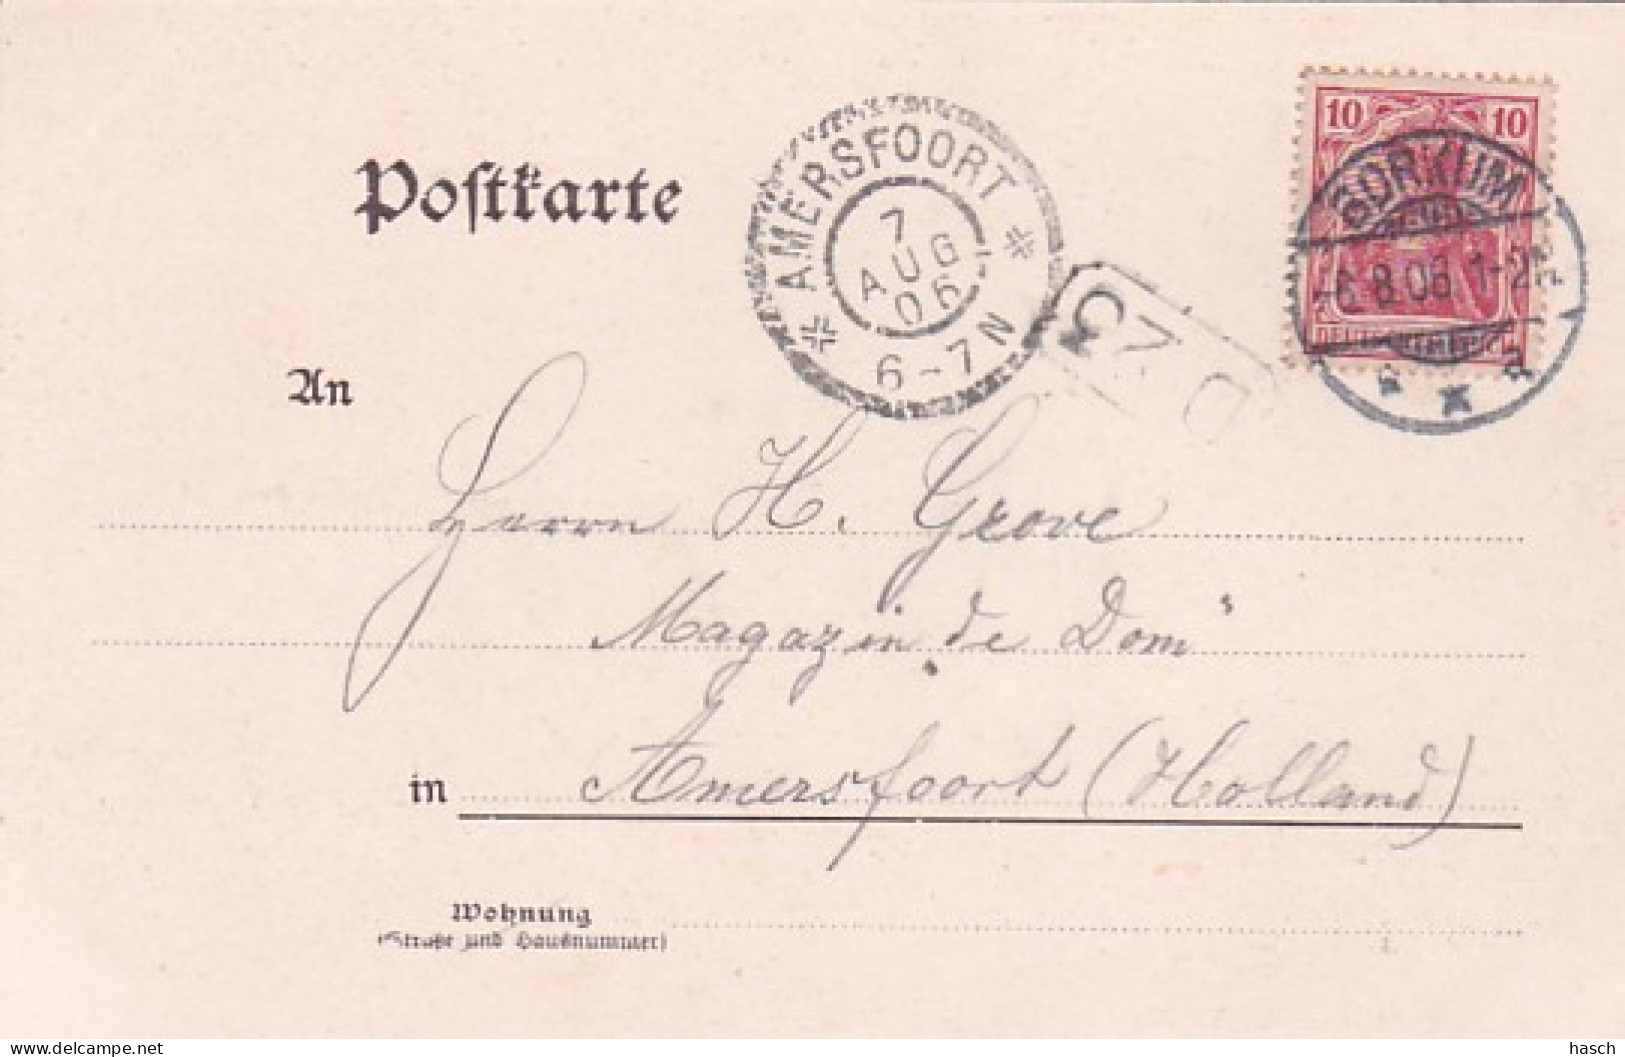 Postkarte
AMERSFOORT
7
AUG
06
6-7N
10 10
BORKUM
6.8.06 1-2
a
An
Herrn H. Grove
Magazin de Dom
in Amersfoort (Holland)
Wohnung
(Straße und Hausnummer)
delcampe.net
hasch